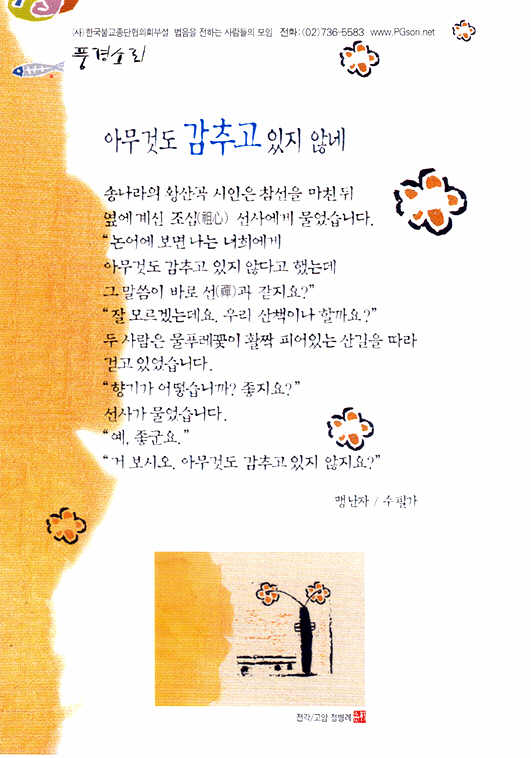 (사)한국불교종단협의회부설 법음을 전하는 사람들의 모임 전화:(02)736-5583 www.PGsori.net
풍경소리
아무것도 감추고 있지 않네
송나라의 황산곡 시인은 참선을 마친 뒤
옆에 계신 조심(祖心) 선사에게 물었습니다.
“논어에 보면 나는 너희에게
아무것도 감추고 있지 않다고 했는데
그 말씀이 바로 선(禪)과 같지요?”
“잘 모르겠는데요. 우리 산책이나 할까요?”
두 사람은 물푸레꽃이 활짝 피어있는 산길을 따라
걷고 있었습니다.
“향기가 어떻습니까? 좋지요?”
선사가 물었습니다.
“예. 좋군요.”
“거 보시오. 아무것도 감추고 있지 않지요?”
맹난자 / 수필가
전각/고암 정병례